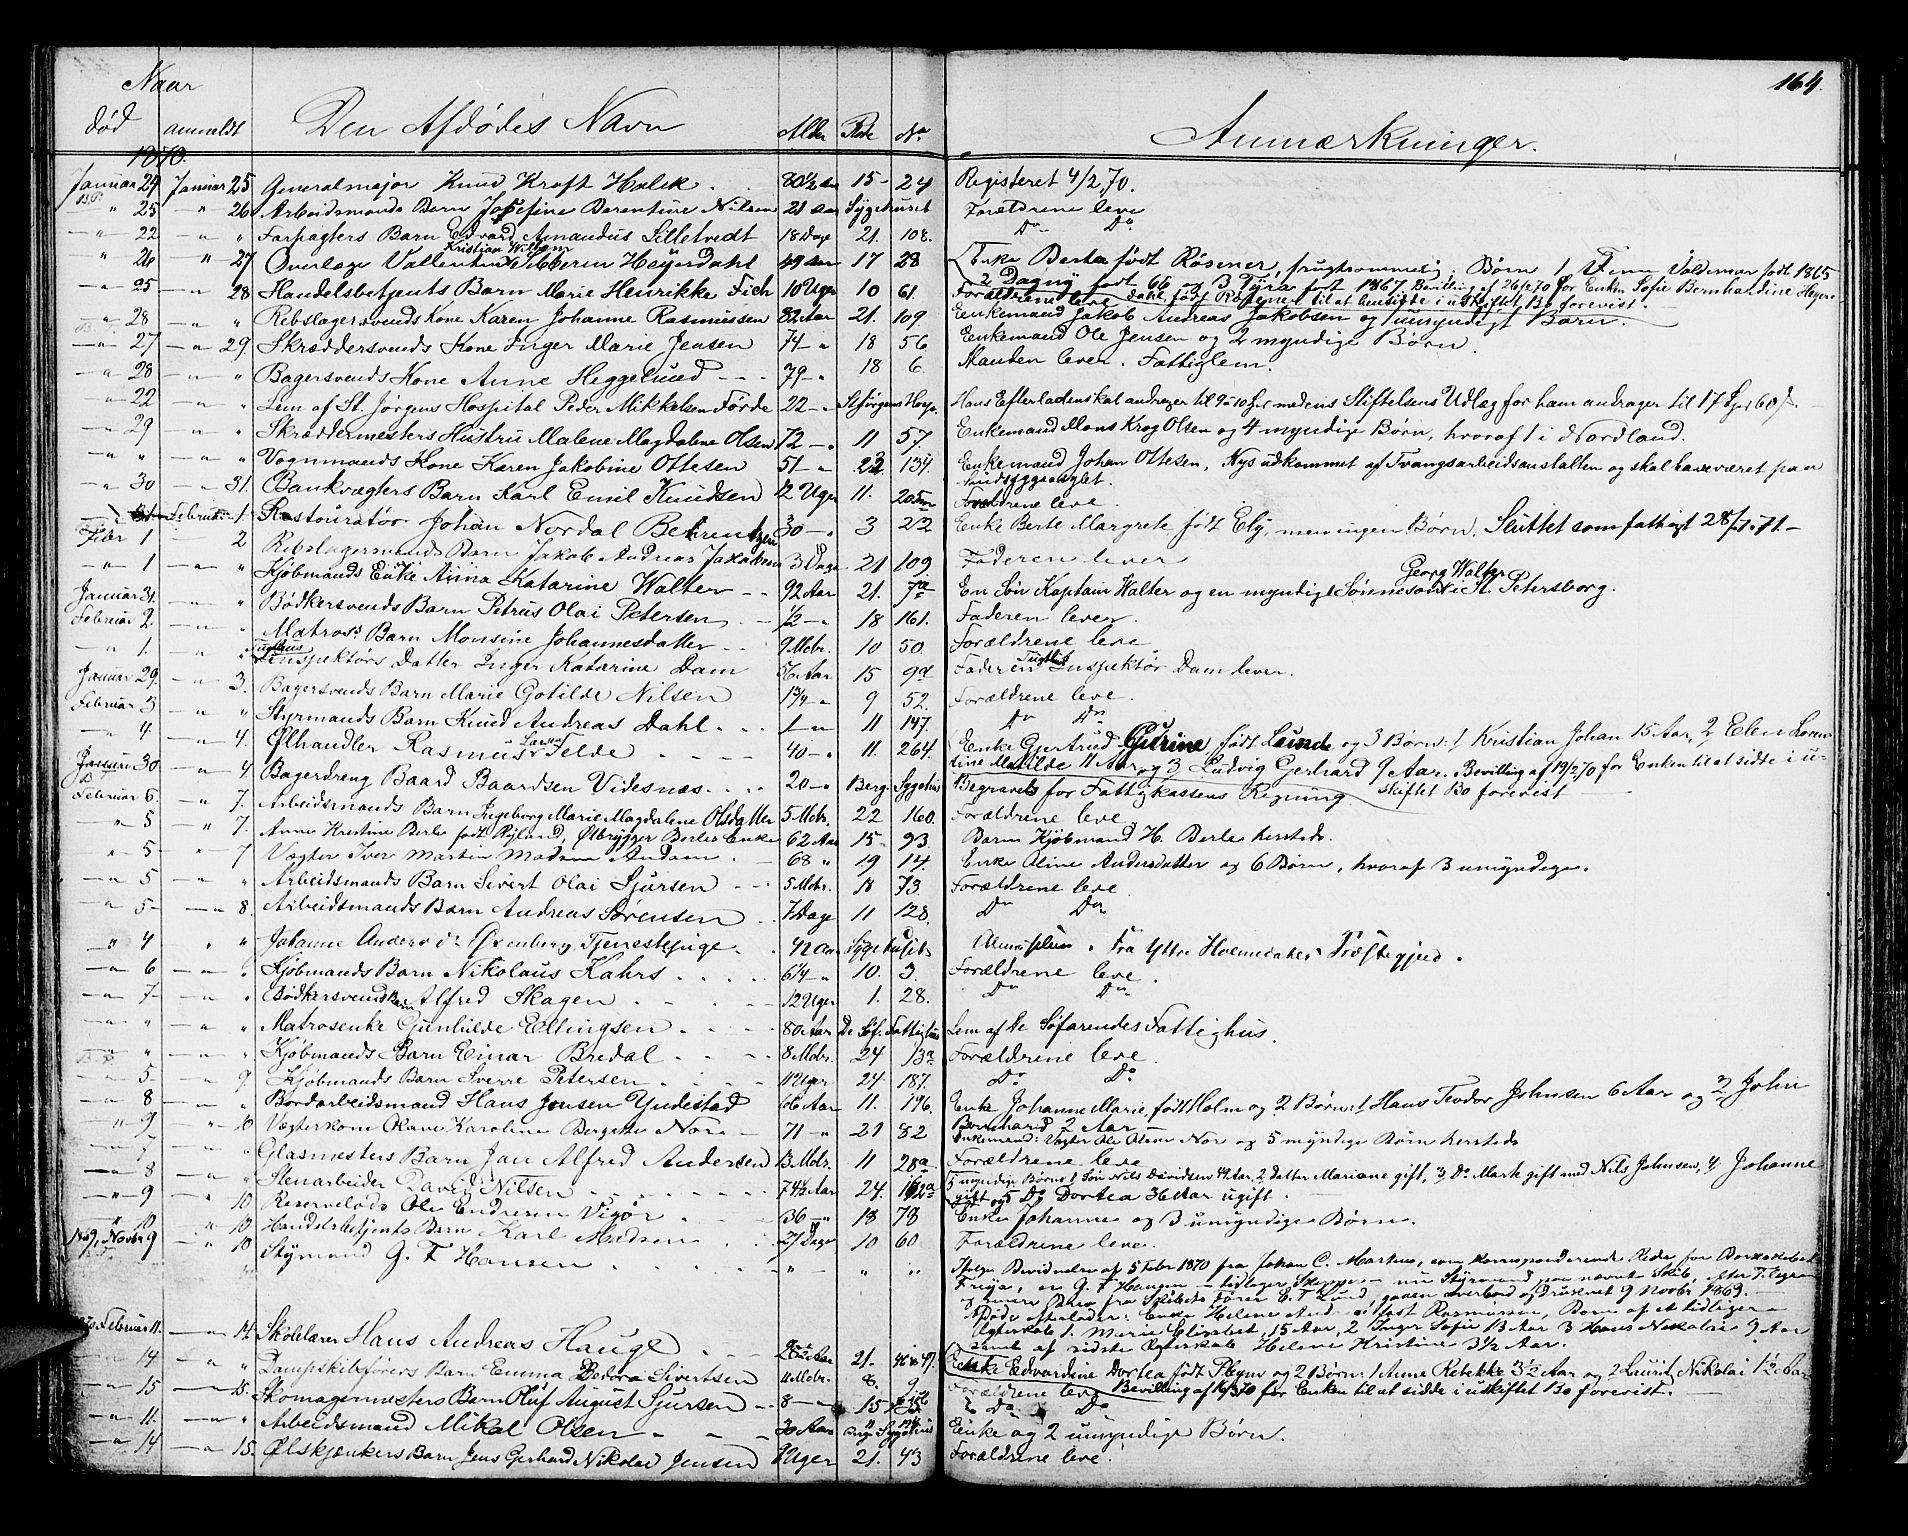 164.
Naar
død anmeldt Den Afdødes Navn Alder Rode No Anmærkninger.
1870.
Januar 24 Januar 25 Generalmajor Knud Kraft Holck 80½ Aar 15 24 Registeret 4/2 70.
" 25 " 26 Arbeidsmands Barn Josefine Berentine Nilsen 21 Aar Sygehuset Forældrene leve
" 22 " " Forpagters Barn Edvard Amandus Lilletvedt 18 Dage 21. 108. Do Do
Kristian Wilhelm
" 26 " 27 Overlæge Vallentin Severin Heyerdahl 49 Aar 17 28 Enke Berta født Rosener, frugtsommelig, Børn 1 Fenn Valdemar født 1865
2 Dagny født 66 og 3 Tyra født 1867 Bevilling af 26/2 70 for Enken Sofie Bernhardine Heyer-
dahl født Røsener til at hensidde i uskiftet Bo forevist.
" 25 " 28 Handelsbetjents Barn Marie Henrikke Fich 10 Uger 10 61. Forældrene leve
" 28 " " Rebslagersvends Kone Karen Johanne Rasmussen 32 Aar 21. 109. Enkemand Jakob Andreas Jakobsen og 1 umyndigt Barn.
" 27 " 29. Skræddersvends Kone Inger Marie Jensen 74 " 18 56 Enkemand Ole Jensen og 2 myndige Børn.
" 28 " " Bagersvends Kone Anne Heggelund 79 " 18 6. Manden lever. Fattiglem.
" 22 " " Lem af St. Jørgens Hospital Peder Mikkelsen Førde 22 " St Jørgens Hosp. Hans Efterladenskal andrager til 9 a 10 Spd medens Stiftelsens Udlæg for ham andrager til 17 Spd 60 s.
" 29 " " Skræddermesters Hustru Malene Magdalene Olsen 72 " 11 57. Enkemand Mons Krog Olsen og 4 myndige Børn, hvoraf 1 i Nordland.
" " " " Vognmands Kone Karen Jakobine Ottesen 51 " 23 134. Enkemand Johan Ottesen, Nys udkommet af Tvangsarbeidsanstalten og skal have været paa
Sindssygeasylet.
" 30 " 31. Bankvægters Barn Karl Emil Knudsen 12 Uger 11. 205 Forældrene leve
Februar 1. Restauratør Johan Nordal Behrentzen 30 " 3 22 Enke Berte Margrete født Eby, men ingen Børn. Sluttet som fattigt 28/7.71
Febr 1 " 2 Rebslagersmands Barn Jakob Andreas Jakobsen 3 Dage 21 109 Faderen lever
" 1 " " Kjøbmands Enke Anna Katarine Walter 92 Aar 21. 7a En Søn Kaptain Walter og en myndig Sønnesøn Georg Walter i St. Petersborg.
Januar 31. " " Bødkersvends Barn Petrus Olai Petersen ½ " 18 161. Faderen lever.
Februar 2. " " Matros's Barn Monsine Johannesdatter 9 Mdr. 10 50. Forældrene leve
" 1. " " Tugthus Inspektørs Datter Inger Katarine Dam 56 Aar 15 9d Faderen Tugthus Inspektør Dam lever.
Januar 29. " 3. Bagersvends Barn Marie Gotilde Nilsen 1¾ " 9 52. Forældrene leve.
Februar 3 " " Styrmands Barn Knud Andreas Dahl 1 " 11 147. Do Do
" 4. " 4. Ølhandler Rasmus Larsen Felde 40 " 11. 264. Enke Gjertrud Petrine født Lunde og 3 Børn: 1 Kristian Johan 15 Aar, 2 Elen Loren-
tine Matilde 11 Aar og 3 Ludvig Gerhard 9 Aar. Bevilling af 19/2 70 for Enken til at sidde i u-
skiftet Bo forevist
Januar 30 " 4. Bagerdreng Baard Baardsen Videsnæs 20 " Berg. Sygehus Begravet for Fattigkassens Regning
Februar 6. " 7. Arbeidsmands Barn Ingeborg Marie Magdalene Olsdatter 5 Mdr. 22 160. Forældrene leve
" 5 " 7. Anne Kristine Berle født Ryland, Ølbrygger Berles Enke 62 Aar 15 93 Barn Kjøbmand H. Berle hersteds.
" 5 " 7 Vægter Iver Martin Madsen Andsen 68 " 19 14. Enke Oline Andersdatter og 6 Børn, hvoraf 3 umyndige.
" 5 " " Arbeidsmands Barn Sivert Olai Sjursen 5 Mdr. 18 73. Forældrene leve
" 5 " 8. Arbeidsmands Barn Andreas Sørensen 7 Dage 11 128. Do Do
" 4 " " Johanne Andersdr Øxenberg, Tjenestepige 42 Aar Sygehuset Fra Yttre Holmedahls Præstegjeld.
" 6 " " Kjøbmands Barn Nikolaus Kahrs 6¼ " 10. 3. Forældrene leve.
" 7 " " Bødkersvends Barn Alfred Skagen 12 Uger 1. 28. Do Do
" " " " Matrosenke Gunhilde Ellingsen 80 Aar De Søf. Fattighus Lem af De Søfarendes Fattighus.
" " " " Kjøbmands Barn Einar Bredal 8 Mdr. 24 13a Forældrene leve
" 5 " 9. Kjøbmands Barn Sverre Petersen 11 Uger 24 187. Do Do
" 8 " " Bordarbeidsmand Hans Jensen Yndestad 66 Aar 11. 196. Enke Johanne Marie, født Holm og 2 Børn: 1 Hans Teodor Johnsen 6 Aar og 2 John
Bernhard 2 Aar
" 9 " 6 Vægterkone Olave Karoline Bergette Nor 71 " 21 82 Enkemand: Vægter Ole Olsen Nor og 5 myndige Børn hersteds
" 7 " " Glasmesters Barn Jan Alfred Andersen 13 Mdr. 11 28a Forældrene leve
" 8 " " Stenarbeider David Nilsen 74½ Aar 24. 162a 5 myndige Børn: 1 Søn Nils Davidsen 49 Aar, 2 Datter Mariane gift, 3 Do Mark gift med Nils Johnsen, 4 Johanne
gift og 5 Do Dortea 36 Aar ugift.
" 9 " 10 Reservelods Ole Endresen Vigør 36 " 18 78 Enke Johanne og 3 umyndige Børn.
" 10 " 10 Handelsbetjents Barn Karl Madsen 27 Dage 10 60. Forældrene leve.
Novbr 9 " 10 Styrmand G. F. Hansen " " " Ifølge Bevidnelse af 5 Febr 1870 fra Johan C. Martens, som korresponderende Reder for Barkskibet
Freija, er G. F. Hansen – tidligere Skipper – nu Styrmand paa nævnte Skib, efter Telegram
senere Brev fra Skibets Fører E. T. Lund, gaaen overbord og druknet 9 Novbr 1869.
Døde efterlader: Enke Helene født Rasmussen, Børn af et tidligere
Ægteskab 1. Marie Elisabet, 15 Aar, 2 Inger Sofie 13 Aar 3 Hans Nikolai 9 Aar
samt af sidste Ægteskab Helene Kristine 3½ Aar.
1870 Februar 11. " 14. Skolelærer Hans Andreas Hauge 28½ Aar 21. 46 & 47. Enke Edvardine Dortea født Pleym og 2 Børn: 1 Anne Rebekke 3½ Aar og 2 Laurits Nikolai 1½ Aar
Bevilling af 16/3 70 for Enken til at sidde i uskiftet Bo forevist.
" 14 " " Dampskibsførers Barn Emma Pedora Sivertsen 11 Mdr. 8. 9 Forældrene leve
" 15 " 15. Skomagermesters Barn Oluf August Sjursen 8 " 15 Do Do
" 11. " " Arbeidsmand Mikal Olsen 30 Aar Berg. Sygehus Enke og 2 umyndige Børn.
" 14 " 15. Ølskjænkers Barn Jens Gerhard Nikolai Jensen Uger 21. 43 Forældrene leve.